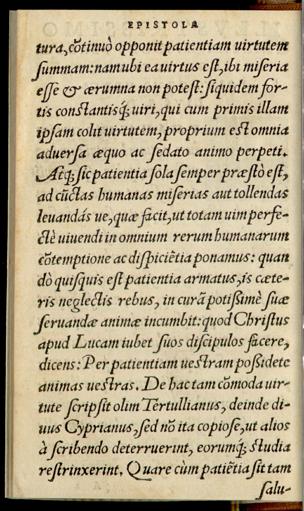 EPISTOLA
tura, cõtinuò opponit patientiam virtutem
summam: nam ubi ea virtus est, ibi miseria
esse & ærumna non potest: siquidem for-
tis constãtisq́; viri, qui cum primis illam
ipsam colit virtutem, proprium est omnia
adversa æquo ac sedato animo perpeti.
Atq́; sic patientia sola semper præstò est,
ad cũctas humanas miserias aut tollendas
levandás ve, quæ facit, ut totam uim perfe-
ctè uiuendi in omnium rerum humanarum
cõtemptione ac dispiciẽtia ponamus: quan
dò quisquis est patientia armatus, is cæte-
ris neglectis rebus, in curã potißimè suæ
seruandæ animæ incumbit: quod Christus
apud Lucam iubet suos discipulos facere,
dicens: Per patientiam uestram poßidete
animas uestras. De hac tam cõmoda uir-
tute scripsit olim Tertullianus, deinde di-
uus Cyprianus, sed nõ ita copiose, ut alios
à scribendo deterruerint, eorumq́; studia
restrinxerint. Quare cùm patiẽtia sit tam
salu-